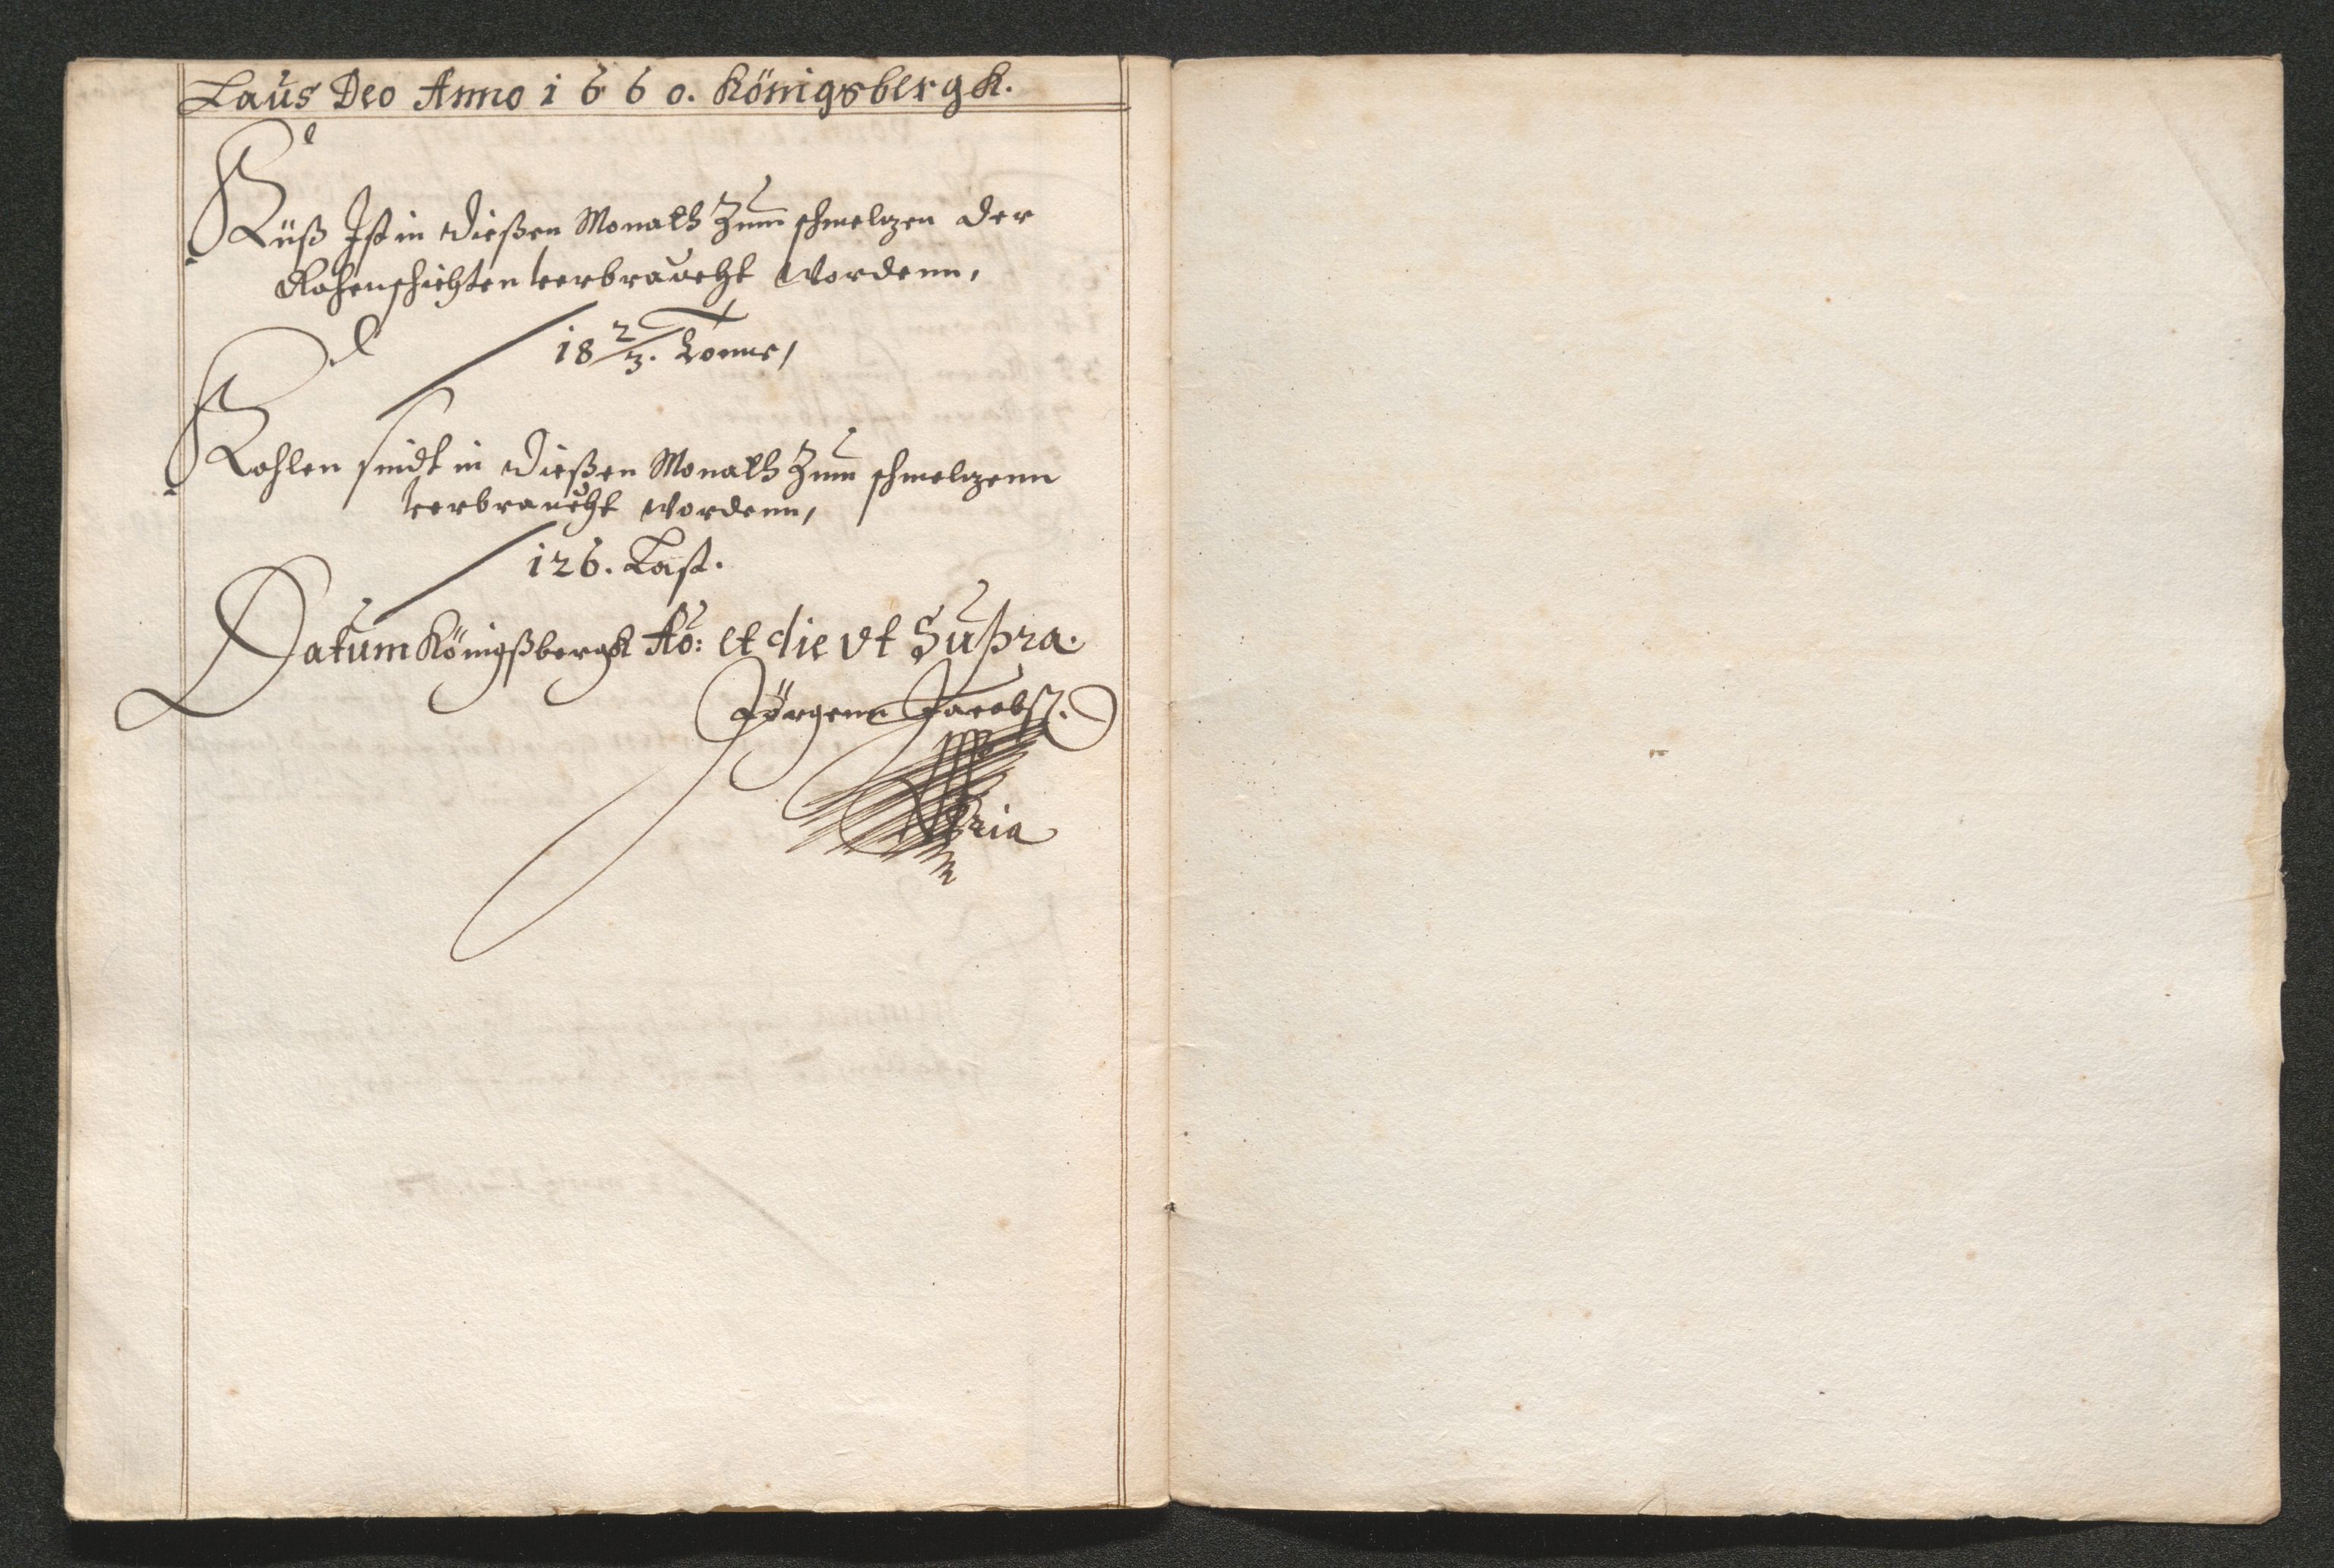 Laus Deo Anno 1660. Königsbergk.
Küß Ist in dießen Monath Zum schmeltzen der
Rohenschichten verbraucht Wordenn,
18 2/3. Tonne,
Kohlen sindt in dießen Monath Zum schmeltzenn
verbraucht wordenn,
126. Last.
Datum Königßbergk Ao: et die vt Supra.
Jörgenn Jacobß.